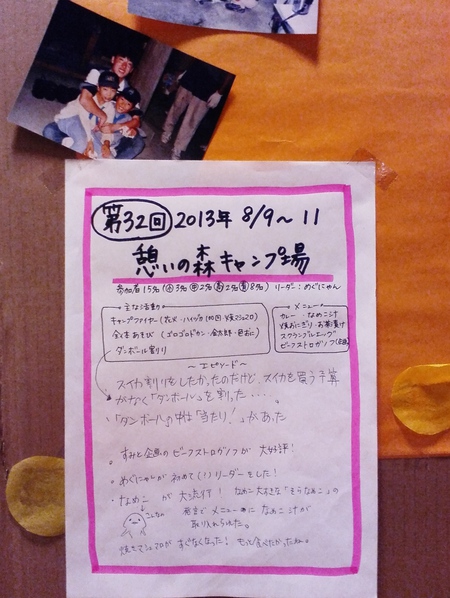 第32回 2013年 8/9〜11
憩いの森キャンプ場
参加者15名(小3名 中2名 高2名 青8名) リーダー:めぐにゃん
主な活動
キャンプファイヤー(花火・ハイジの 焼マシュマロ)
全体あそび(ゴロゴロドカン・金太郎・
ダンボール割り
メニュー
カレー・なめこ汁
焼おにぎり・お茶漬け
スクランブルエッグ
ビーフストロガノフ
〜エピソード〜
スイカ割りをしたかったのだけど、スイカを買う予算
がなく「ダンボール」を割った・・・・。
「ダンボール」の中は「当たり!」があった
すみと企画のビーフストロガノフが 大好評!
めぐにゃんが初めて(!)リーダーをした!
なめこ が 大流行! なめこ大好きな「そらなめこ」の
こんなの 発言でメニューに なめこ汁が
取り入れられた。
焼きマシュマロが すぐなくなった! もっと食べたかったね。